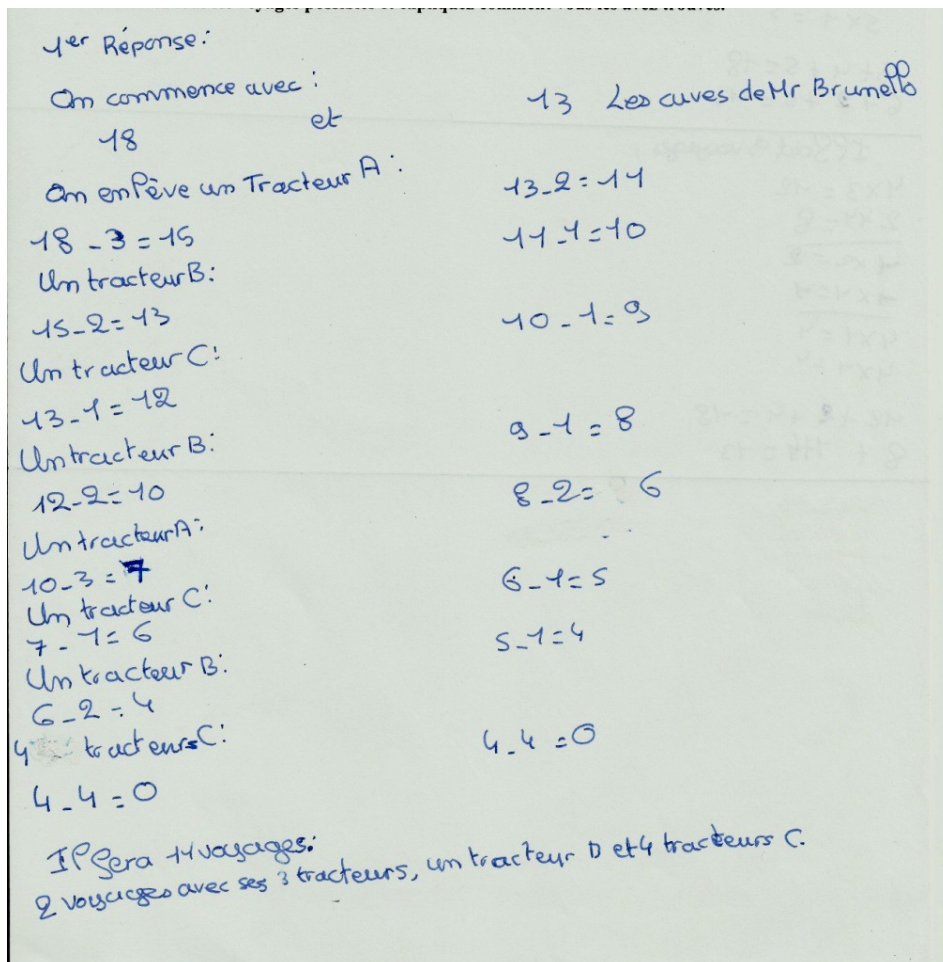 1er Réponse:
On commence avec:
18 et 13 Les cuves de Mr Brunello
On enlève un Tracteur A:
18 - 3 = 15 13 - 2 = 11
Un tracteur B: 11 - 1 = 10
15 - 2 = 13
Un tracteur C: 10 - 1 = 9
13 - 1 = 12
Un tracteur B: 9 - 1 = 8
12 - 2 = 10
Un tracteur A: 8 - 2 = 6
10 - 3 = 7
Un tracteur C: 6 - 1 = 5
7 - 1 = 6
Un tracteur B: 5 - 1 = 4
6 - 2 = 4
4 tracteurs C: 4 - 4 = 0
4 - 4 = 0
Il fera 11 voyages:
2 voyages avec ses 3 tracteurs, un tracteur B et 4 tracteurs C.